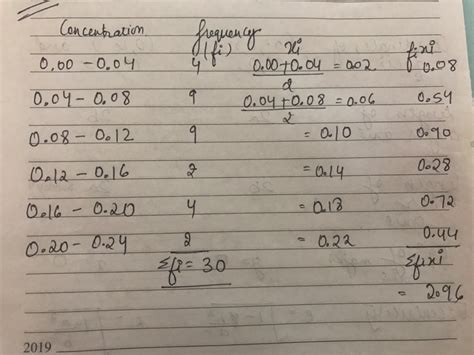 Concentration frequency (fi) xi fixi
0.00 - 0.04 4 0.00+0.04/2 = 0.02 0.08
0.04 - 0.08 9 0.04+0.08/2 = 0.06 0.54
0.08 - 0.12 9 = 0.10 0.90
0.12 - 0.16 2 = 0.14 0.28
0.16 - 0.20 4 = 0.18 0.72
0.20 - 0.24 2 = 0.22 0.44
Σfi = 30 Σfixi
= 2.96
2019